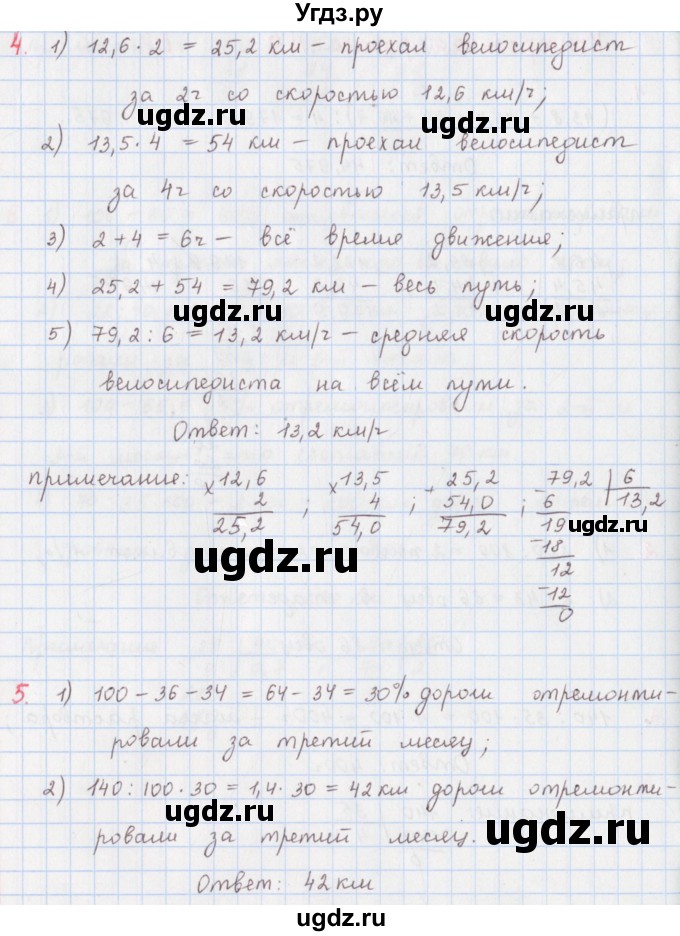 Угдз.ру
4. 1) 12,6 · 2 = 25,2 км – проехал велосипедист
за 2ч со скоростью 12,6 км/ч;
ugdz.ru
2) 13,5 · 4 = 54 км – проехал велосипедист
за 4ч со скоростью 13,5 км/ч;
3) 2 + 4 = 6ч – всё время движения;
4) 25,2 + 54 = 79,2 км – весь путь;
ugdz.ru ugdz.ru
5) 79,2 : 6 = 13,2 км/ч – средняя скорость
велосипедиста на всём пути.
Ответ: 13,2 км/ч
примечание: × 12,6 × 13,5 + 25,2 – 79,2 | 6
2 ; 4 ; 54,0 ; 6 13,2
25,2 54,0 79,2 19
ugdz.ru
– 18
12
– 12
0
ugdz.ru
5. 1) 100 – 36 – 34 = 64 – 34 = 30% дороги отремонти-
ровали за третий месяц;
2) 140 : 100 · 30 = 1,4 · 30 = 42 км дороги отремонти-
ugdz.ru ugdz.ru
ровали за третий месяц.
Ответ: 42 км
ugdz.ru